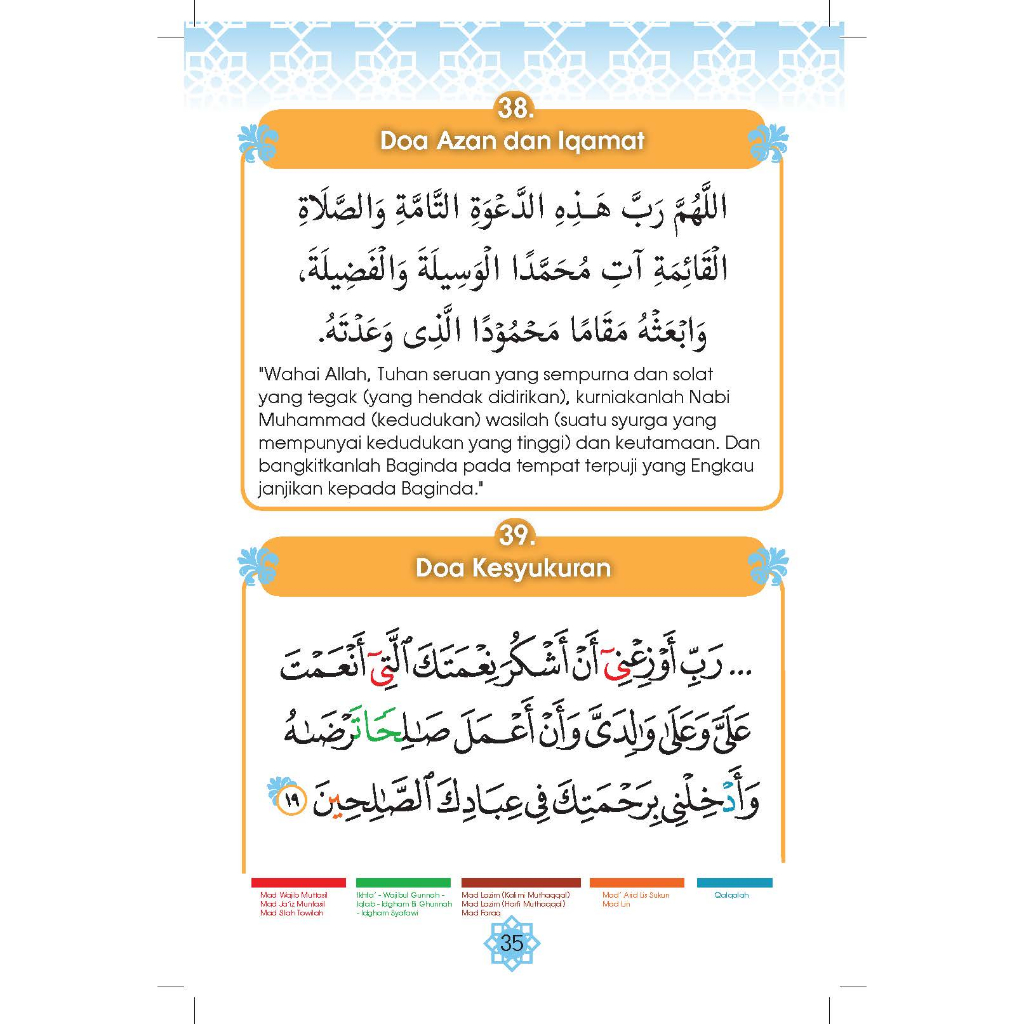 38.
Doa Azan dan Iqamat
اللَّهُمَّ رَبَّ هَـذِهِ الدَّعْوَةِ التَّامَّةِ وَالصَّلَاةِ
الْقَائِمَةِ آتِ مُحَمَّدًا الْوَسِيلَةَ وَالْفَضِيلَةَ،
وَابْعَثْهُ مَقَامًا مَحْمُوْدًا الَّذِى وَعَدْتَهُ.
"Wahai Allah, Tuhan seruan yang sempurna dan solat
yang tegak (yang hendak didirikan), kurniakanlah Nabi
Muhammad (kedudukan) wasilah (suatu syurga yang
mempunyai kedudukan yang tinggi) dan keutamaan. Dan
bangkitkanlah Baginda pada tempat terpuji yang Engkau
janjikan kepada Baginda."
39.
Doa Kesyukuran
... رَبِّ أَوْزِعْنِىٓ أَنْ أَشْكُرَ نِعْمَتَكَ ٱلَّتِىٓ أَنْعَمْتَ
عَلَىَّ وَعَلَىٰ وَٰلِدَىَّ وَأَنْ أَعْمَلَ صَـٰلِحًا تَرْضَىٰهُ
وَأَدْخِلْنِى بِرَحْمَتِكَ فِى عِبَادِكَ ٱلصَّـٰلِحِينَ ١٩
Mad Wajib Muttasil
Mad Ja'iz Munfasil
Mad Silah Towilah
Ikhfa' - Wajibul Gunnah -
Iqlab - Idgham Bi Ghunnah
- Idgham Syafawi
Mad Lazim (Kalimi Muthaqqal)
Mad Lazim (Harfi Muthaqqal)
Mad Farag
Mad' Arid Lis Sukun
Mad Lin
Qalqalah
35